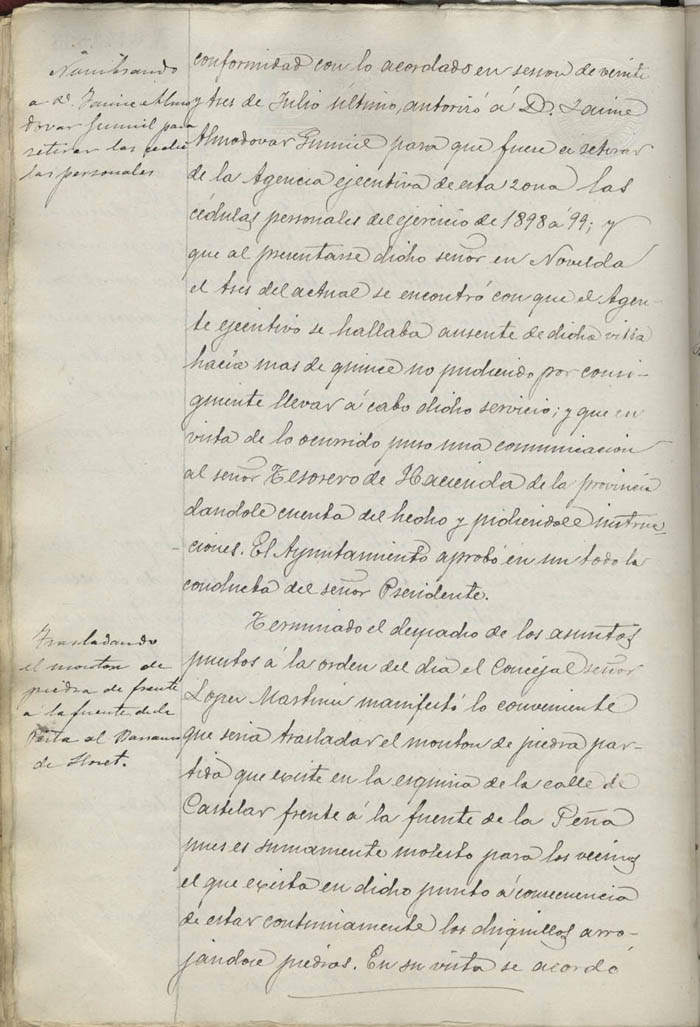 Nombrando
a D. Jaime Almo
dovar Gumiel para
retirar las cedu
las personales
conformidad con lo acordado en sesion de veinte
y tres de Julio último, autorizó á D. Jaime
Almodovar Gumiel para que fuese á retirar
de la Agencia ejecutiva de esta zona las
cédulas personales del ejercicio de 1898 á 99; y
que al presentarse dicho señor en Novelda
el tres del actual se encontró con que el Agen-
te ejecutivo se hallaba ausente de dicha villa
hacía mas de quince no pudiendo por consi-
guiente llevar á cabo dicho servicio; y que en
vista de lo ocurrido puso una comunicacion
al señor Tesorero de Hacienda de la provincia
dandole cuenta del hecho y pidiendole instruc-
ciones. El Ayuntamiento aprobó en un todo la
conducta del señor Presidente.
Trasladando
el monton de
piedra de frente
a la fuente de la
Peña al Barranco
de Lloret.
Terminado el despacho de los asuntos
puestos á la orden del dia el Concejal señor
Lopez Martinez manifestó lo conveniente
que seria trasladar el monton de piedra par-
tida que existe en la esquina de la calle de
Castelar frente á la fuente de la Peña
pues es sumamente molesto para los vecinos
el que exista en dicho punto á consecuencia
de estar continuamente los chiquillos arro-
jándose piedras. En su vista se acordó